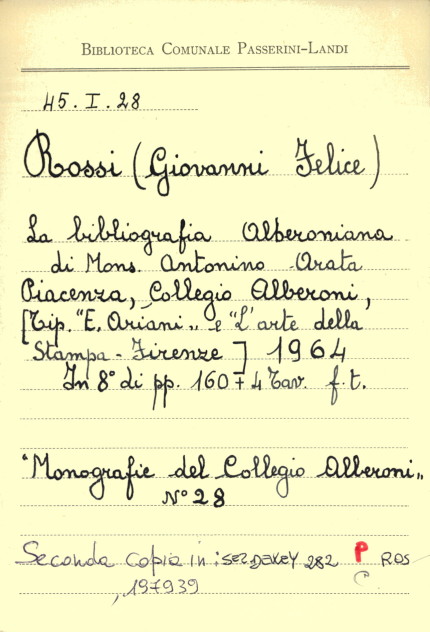 BIBLIOTECA COMUNALE PASSERINI-LANDI
45.I.28
Rossi (Giovanni Felice)
La bibliografia Alberoniana
di Mons. Antonino Arata
Piacenza, Collegio Alberoni,
[Tip. "E. Ariani" e "L'arte della
Stampa - Firenze] 1964
In 8° di pp. 160 + 4 Tav. f.t.
"Monografie del Collegio Alberoni"
N° 28
Seconda copia in: SEZ DEWEY 282 P ROS
C.
, 197939